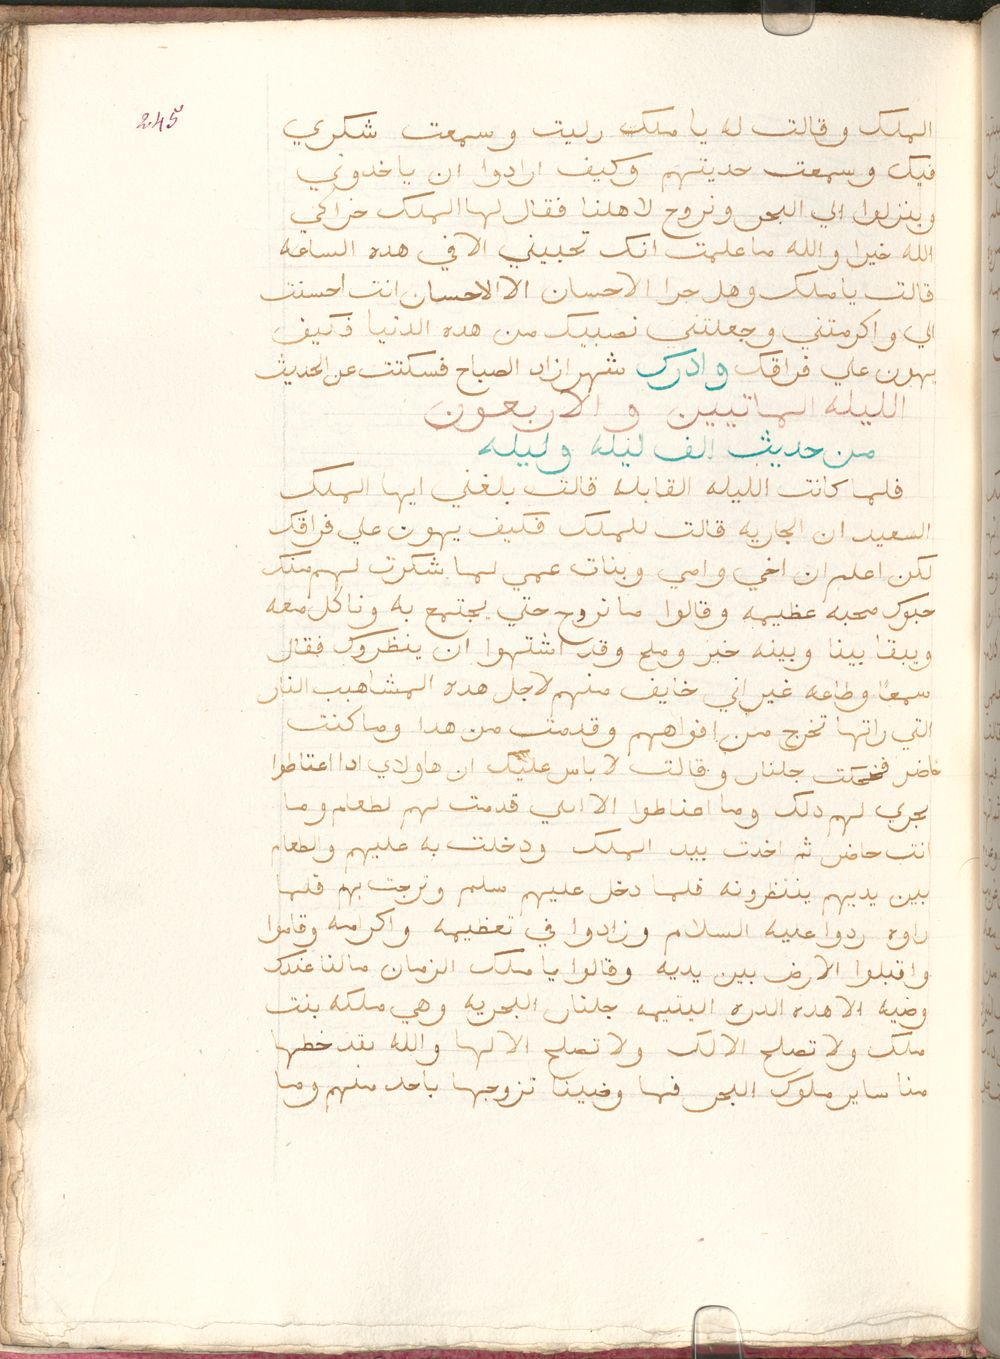 245
الملك وقالت له يا ملك رايت وسمعت شكري
فيك وسمعت حديثهم وكيف ارادوا ان ياخدوني
وينزلوا الي البحر ونروح لاهلنا فقال لها الملك جزاكي
الله خيرا والله ما علمت انك تحبيني الا في هده الساعه
قالت يا ملك وهل جزا الاحسان الا الاحسان انت احسنت
الي واكرمتني وجعلتني نصيبك من هده الدنيا فكيف
يهون علي فراقك وادرك شهرازاد الصباح فسكتت عن الحديث
الليله الماتيين والاربعون
من حديث الف ليله وليله
فلما كانت الليله القابله قالت بلغني ايها الملك
السعيد ان الجاريه قالت للملك فكيف يهون علي فراقك
لكن اعلم ان اخي وامي وبنات عمي لما شكرت لهم منك
حبوك محبه عظيمه وقالوا ما نروح حتي يجتمع به وناكل معه
ويبقا بينا وبينه خبز وملح وقد اشتهوا ان ينظروك فقال
سمعًا وطاعه غير اني خايف منهم لاجل هده المشاهيب النار
التي راتها تخرج من افواههم وقدمت من هدا وما كنت
حاضر فضحكت جلنار وقالت لا باس عليك ان هاولاي ادا اغتاظوا
يجري لهم دلك وما اغتاظوا الا اني قدمت لهم لطعام وما
انت حاضر ثم اخدت بيد الملك ودخلت به عليهم والطعام
بين يديهم ينتظرونه فلما دخل عليهم سلم وترجت بهم فلما
راوه ردوا عليه السلام وزادوا في تعظيمه واكرامه وقاموا
واقبلوا الارض بين يديه وقالوا يا ملك الزمان ما لنا عندك
وصيه الا هده الدره اليتيمه جلنار البحريه وهي ملكه بنت
ملك ولا تصلح الا لك ولا تصلح الا لها والله لقد خطبها
منا ساير ملوك البحر فما رضينا تزوجها باحد منهم وما